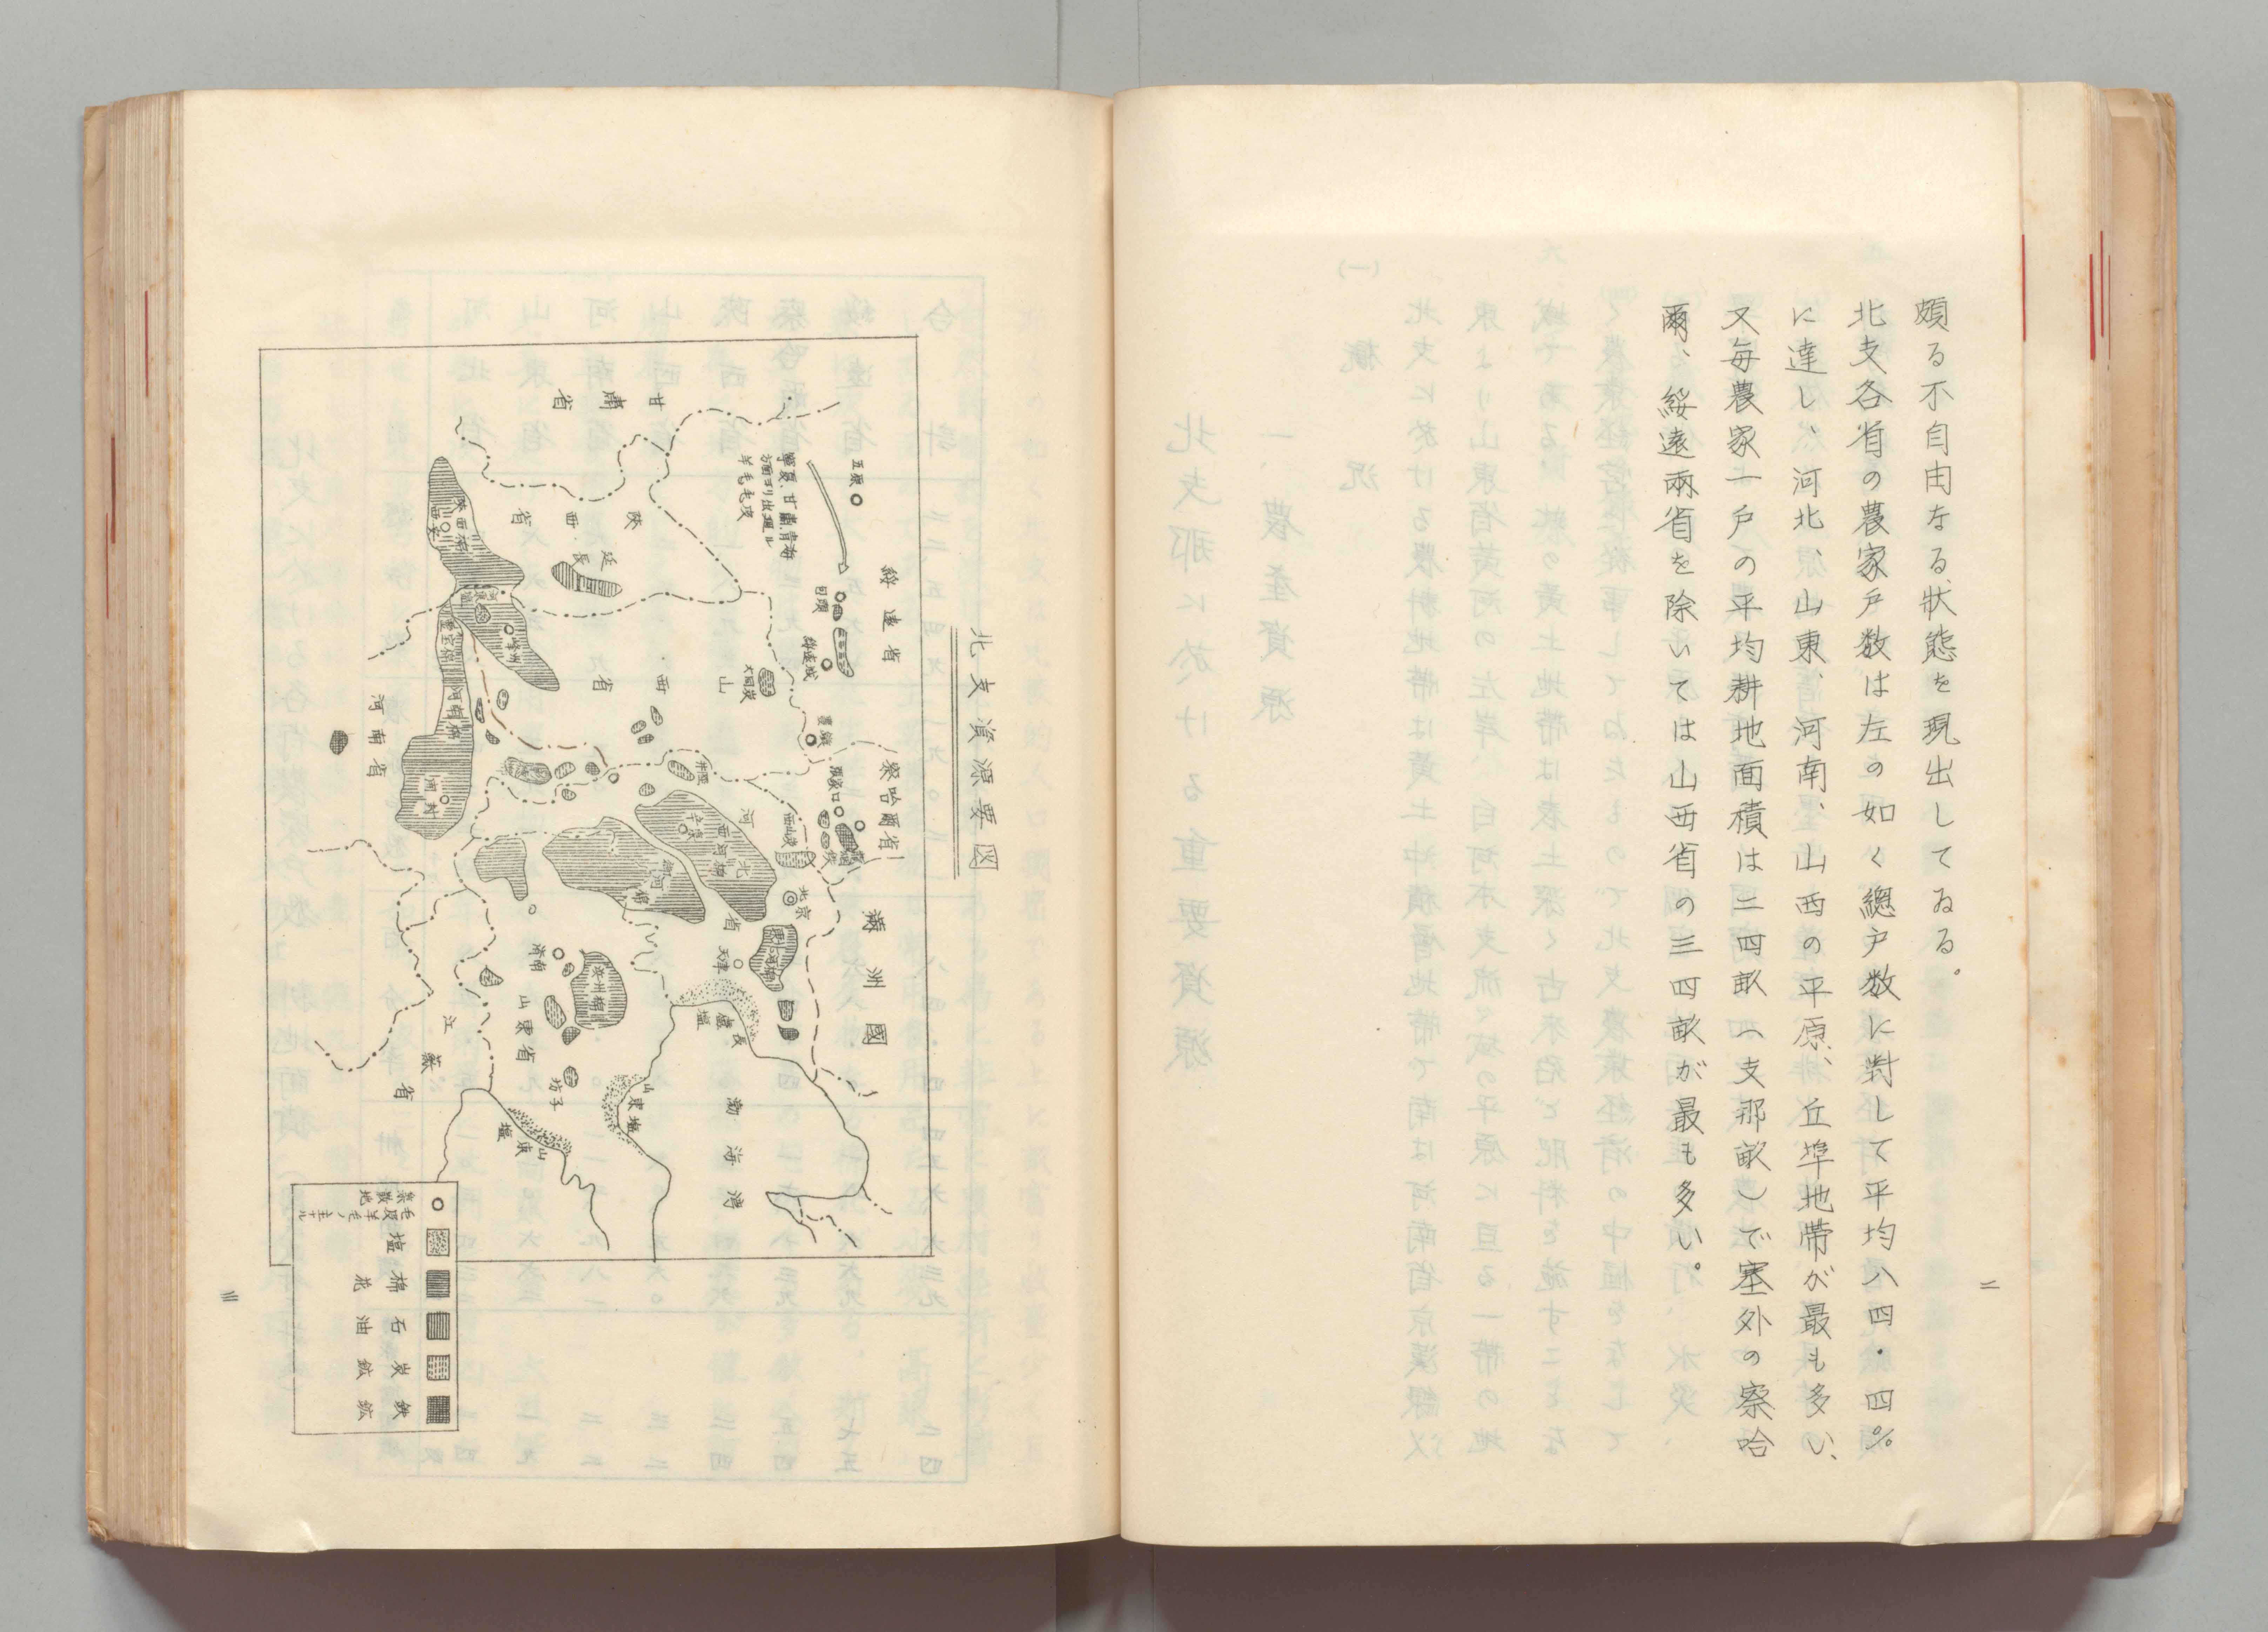 頗る不自由なる状態を現出してゐる。
北支各省の農家戸数は左の如く總戸数に對して平均八四・四%
に達し、河北、山東、河南、山西の平原、丘埠地帯が最も多い、
又毎農家一戸の平均耕地面積は二四畝(支那畝)で塞外の察哈
爾、綏遠兩省を除いては山西省の三四畝が最も多い。
二
北支資源要図
綏遠省
察哈爾省
滿洲國
五原
寧夏、甘肅、青海
方面ヨリ出廻ル
羊毛毛皮
包頭
綏遠城
大同炭
張家口
西山炭
北京
甘肅省
陝西省
延長
山西省
河北省
井陘
天津
長蘆塩
渤海灣
陝西棉
西安
絳州
靈宝棉
河南棉
開封
河南省
西河棉
御河棉
濟南
濱州棉
山東省
坊子
山東塩
山東塩
江蘇省
毛皮羊毛ノ主ナル
集散地
塩
棉花
石油
炭鉱
鉄鉱
三